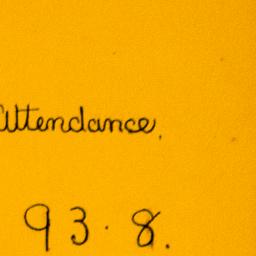 Attendance.
93.8.